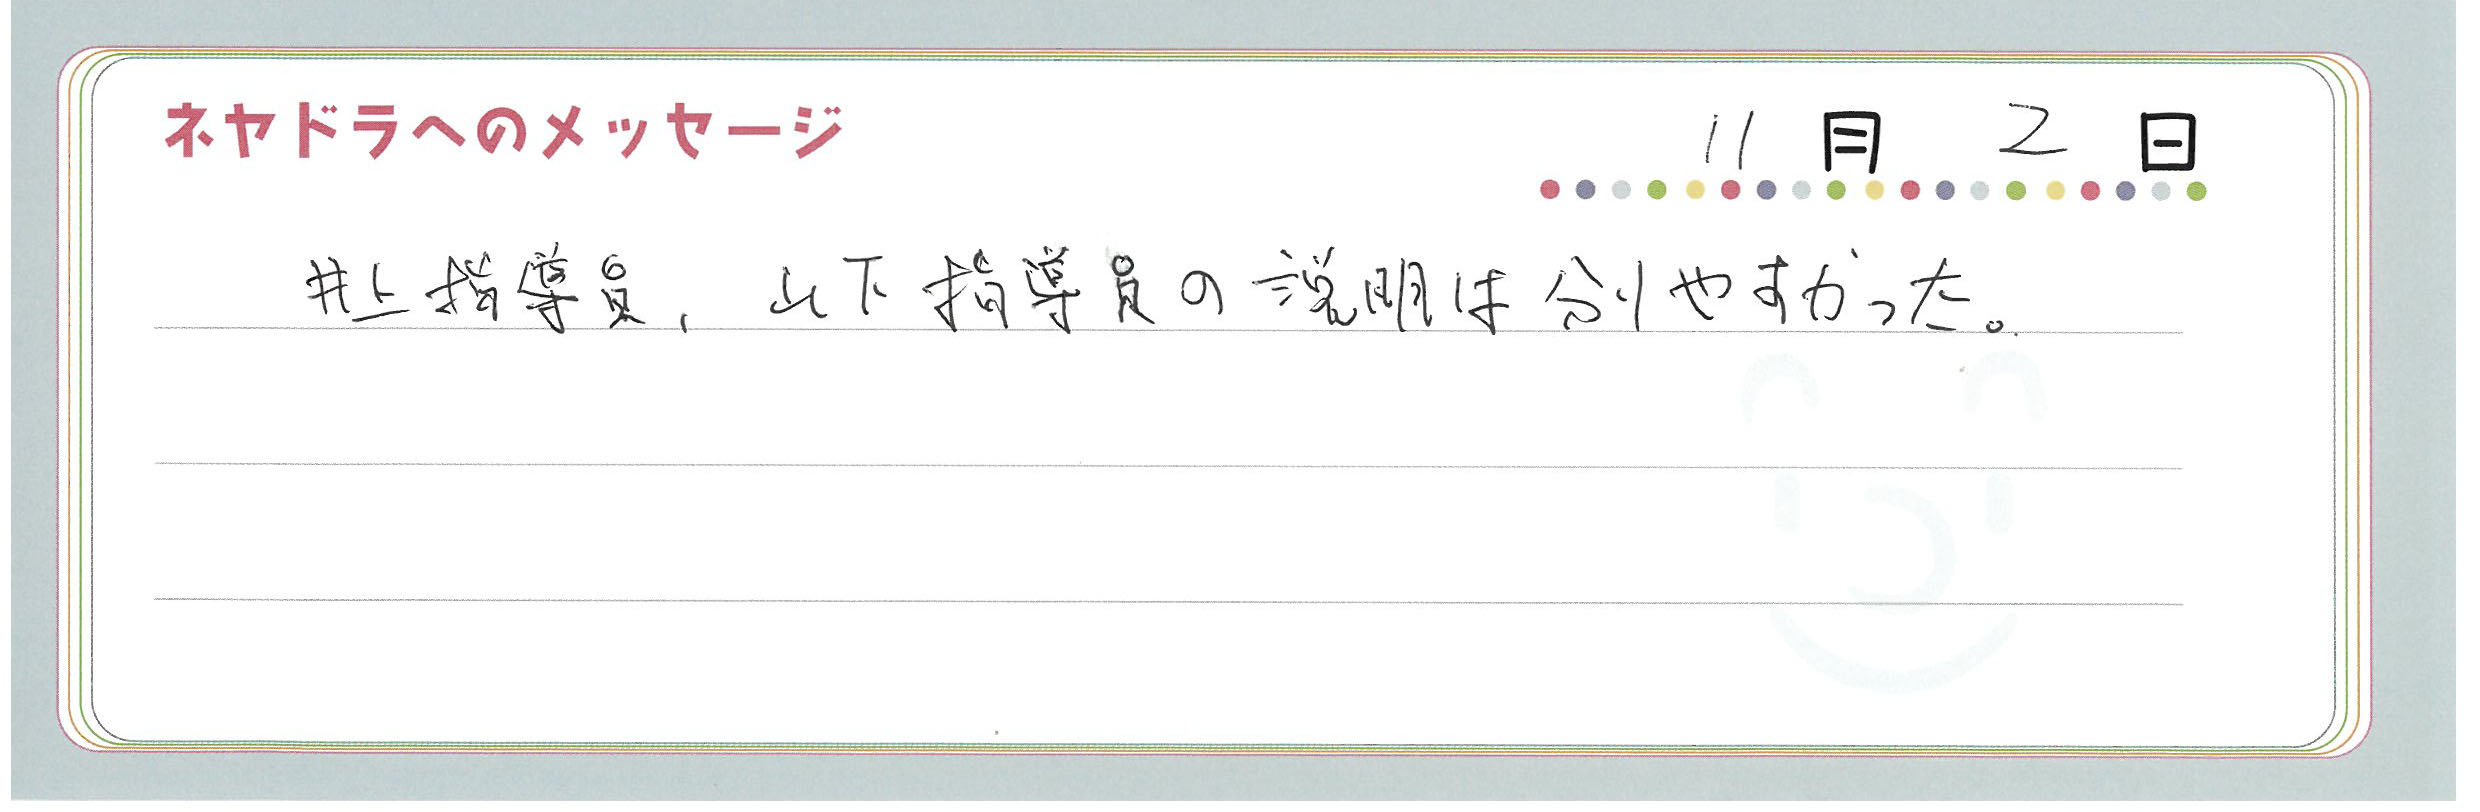 ネヤドラへのメッセージ
11月 2日
井上指導員、山下指導員の説明は分りやすかった。